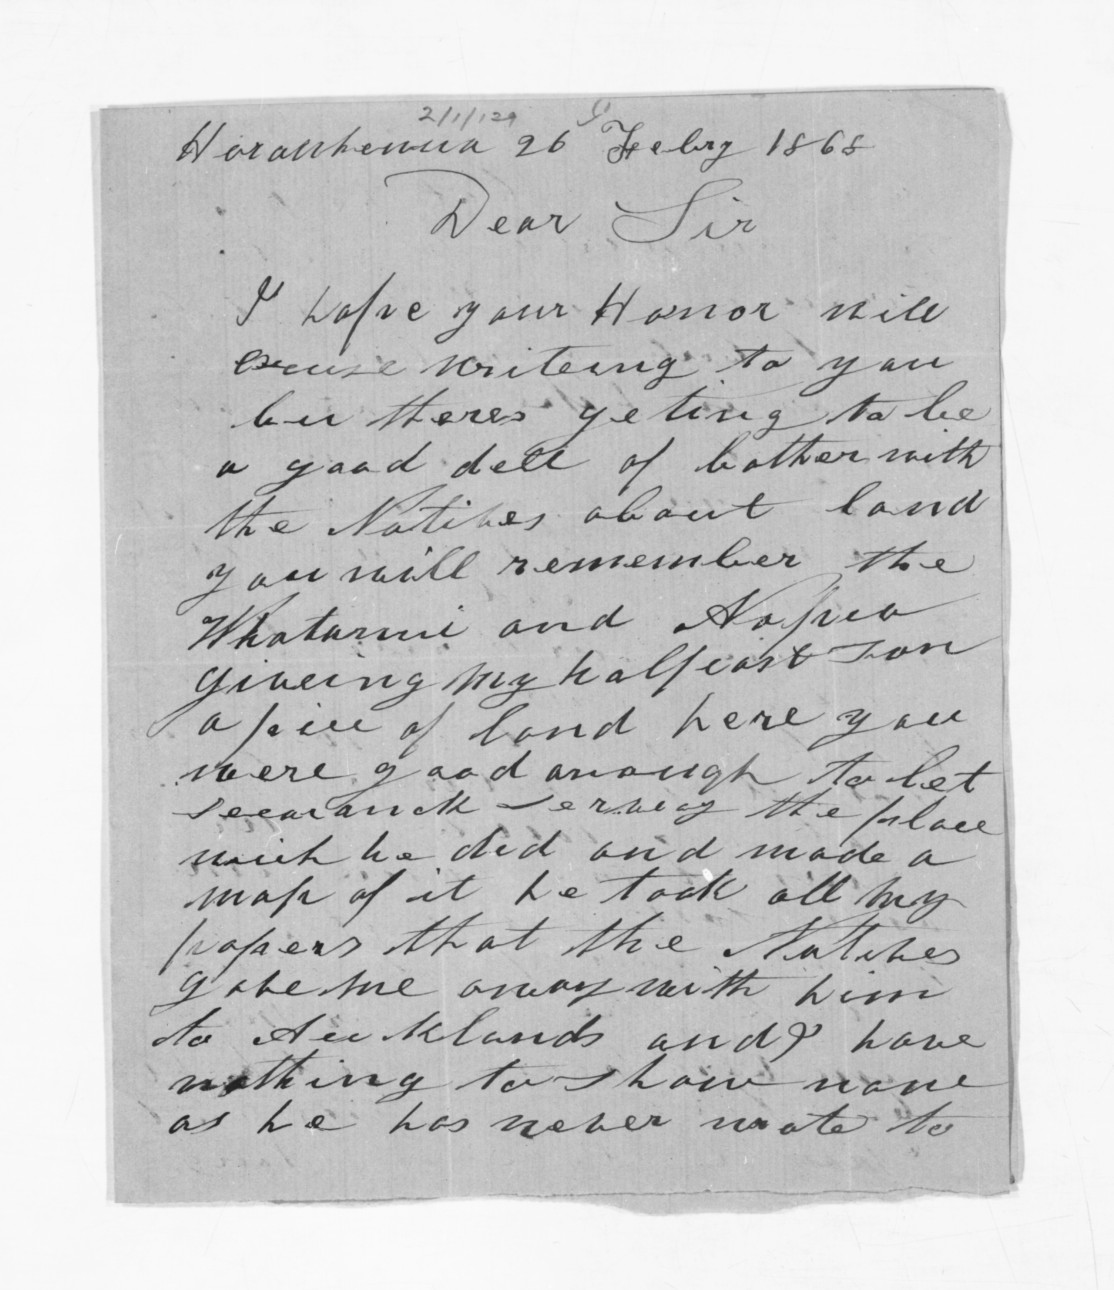 2/1/129
Horowhenua 26 Febry 1868
Dear Sir
I hope your Honor will
excuse writeing to you
but theres geting to be
a good dell of bother with
the Natives about land
you will remember the
and
giveing my halfcast son
a piece of land here you
were good anough to let
the place
wich he did and made a
map of it he took all my
papers that the Natives
gave me away with him
to Aucklands and I have
nothing to show now
as he has never wrote to